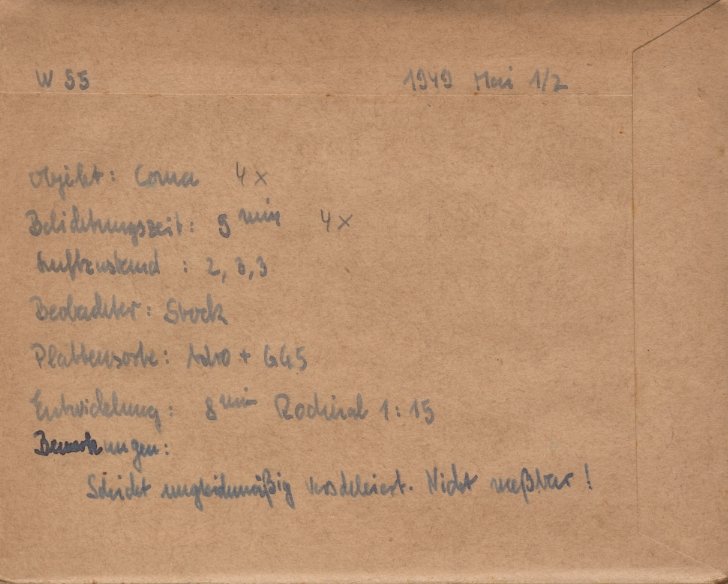 W 95 1949 Mai 1/2
Objekt: Coma 4x
Belichtungszeit: 5 min 4x
Luftzustand : 2, 3, 3
Beobachter: Stock
Plattensorte: Astro + G45
Entwicklung: 8 min Rodinal 1:15
Bemerkungen:
Schicht ungleichmäßig. Nicht meßbar!